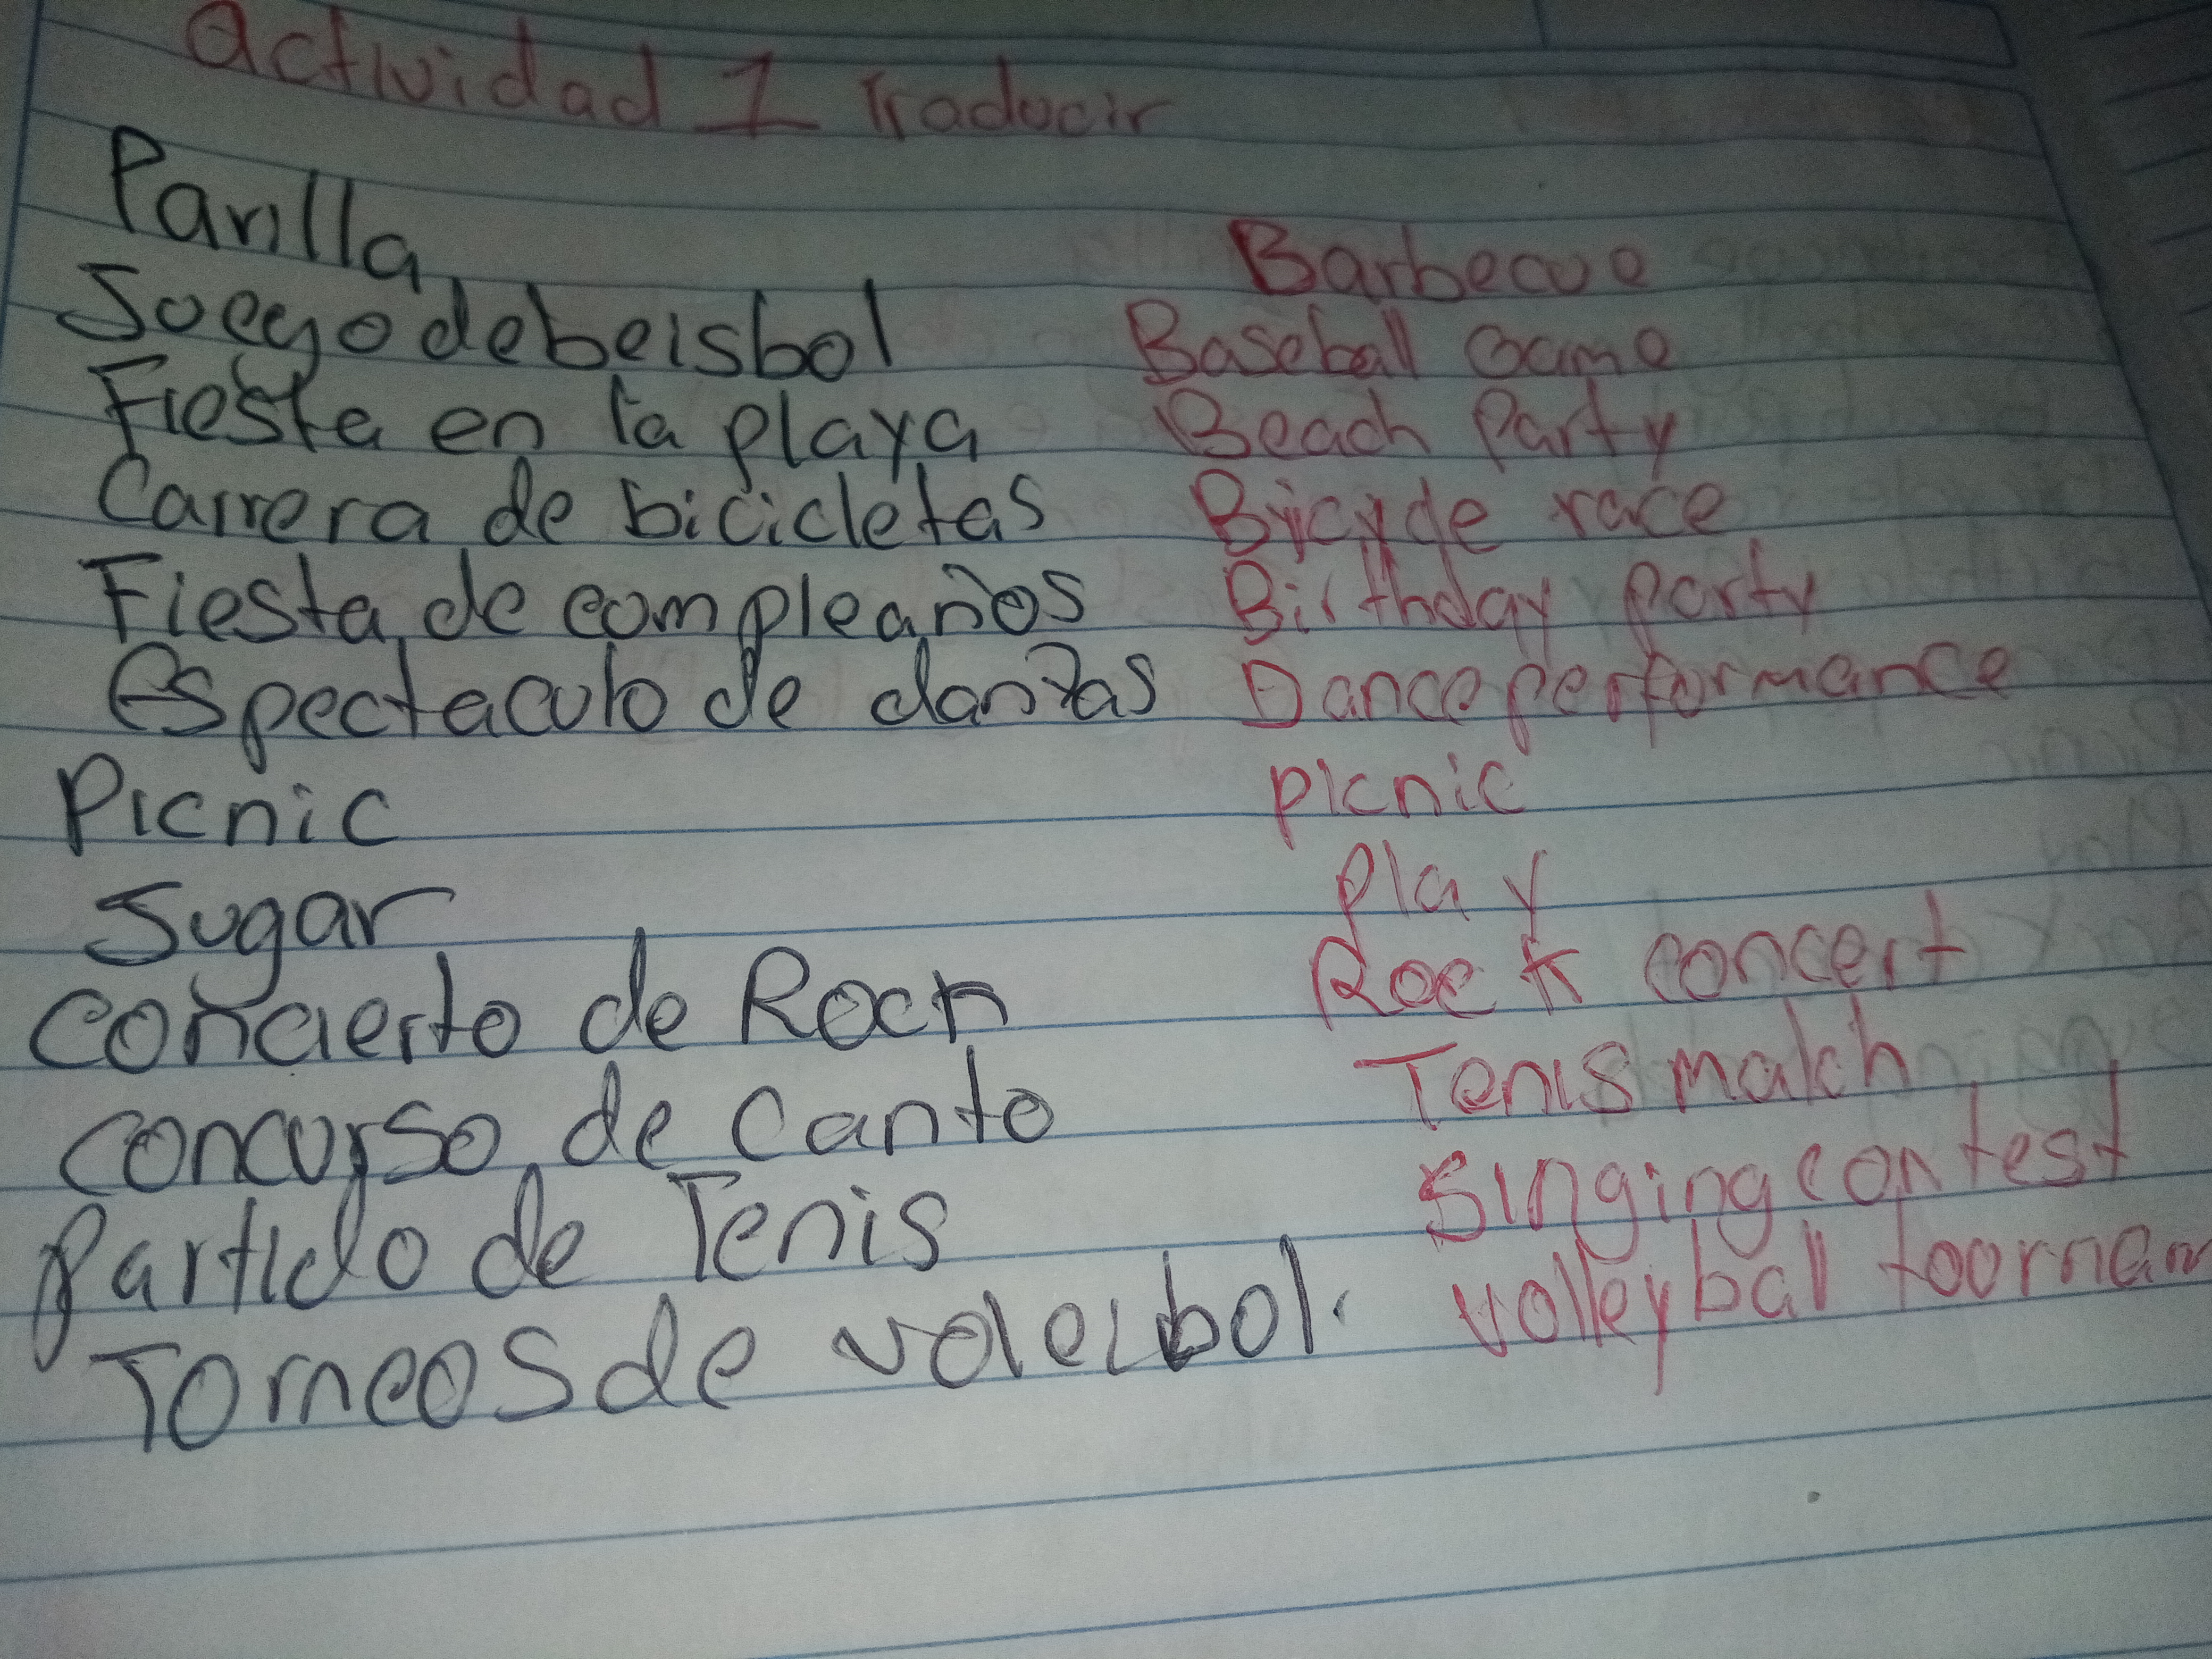 actividad 1 traducir
Parilla
Barbecue
Juego de beisbol
Baseball Game
Fiesta en la playa
Beach Party
Carrera de bicicletas
Bicycle race
Fiesta de compleaños
Birthday party
espectaculo de danzas
Dance performance
Picnic
picnic
Jugar
Play
concierto de Rock
Rock concert
concurso de Canto
Tenis match
Partido de Tenis
Singing contest
Torneos de voleibol.
volleyball